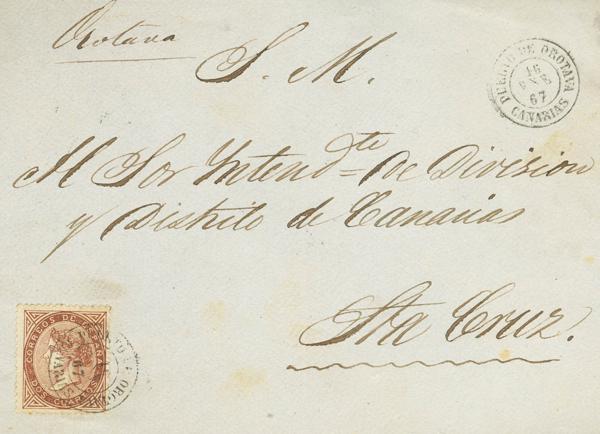 Orotava
S. M.
PUERTO DE OROTAVA
16
67
CANARIAS
Al Sor Intend.te de Division
y Distrito de Canarias
Sta Cruz.
CORREOS DE ESPAÑA
DOS CUARTOS